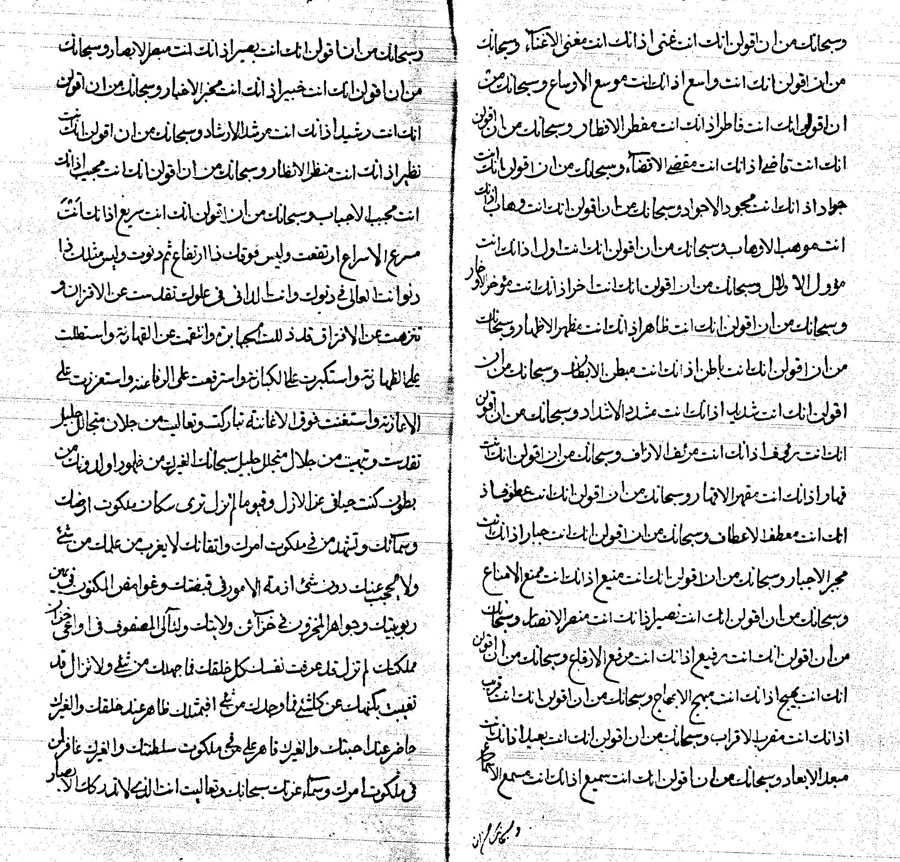 وسبحانك من ان اقولن انك انت غنی اذ انك انت مغنی الاغناء وسبحانك
من ان اقولن انك انت واسع اذ انك انت موسع الاوساع وسبحانك من
ان اقولن انك انت فاطر اذ انك انت مفطر الافطار وسبحانك من ان اقولن
انك انت قاضی اذ انك انت مقضی الاقضاء وسبحانك من ان اقولن انك انت
جواد اذ انك انت مجود الاجواد وسبحانك من ان اقولن انك انت وهاب اذ انك
انت موهب الاوهاب وسبحانك من ان اقولن انك انت اول اذ انك انت
مؤول الاولال وسبحانك من ان اقولن انك انت اخر اذ انك انت مؤخر الاوخار
وسبحانك من ان اقولن انك انت ظاهر اذ انك انت مظهر الاظهار وسبحانك
من ان اقولن انك انت باطن اذ انك انت مبطن الابطان وسبحانك من ان
اقولن انك انت شدید اذ انك انت مشدد الاشداد وسبحانك من ان اقولن
انك انت رؤف اذ انك انت مرئف الارآف وسبحانك من ان اقولن انك انت
قهار اذ انك انت مقهر الاقهار وسبحانك من ان اقولن انك انت عطوف اذ
انك انت معطف الاعطاف وسبحانك من ان اقولن انك انت جبار اذ انك انت
مجبر الاجبار وسبحانك من ان اقولن انك انت منیع اذ انك انت ممنع الامناع
وسبحانك من ان اقولن انك انت نصیر اذ انك انت منصر الانصار وسبحانك
من ان اقولن انك انت رفیع اذ انك انت مرفع الارفاع وسبحانك من ان اقولن
انك انت بهیج اذ انك انت مبهج الابهاج وسبحانك من ان اقولن انك انت قریب
اذ انك انت مقرب الاقراب وسبحانك من ان اقولن انك انت بعید اذ انك انت
مبعد الابعاد وسبحانك من ان اقولن انك انت سمیع اذ انك انت مسمع الاسماع
وسبحانك من ان
وسبحانك من ان اقولن انك انت بصیر اذ انك انت مبصر الابصار وسبحانك
من ان اقولن انك انت خبیر اذ انك انت مخبر الاخبار وسبحانك من ان اقولن
انك انت رشید اذ انك انت مرشد الارشاد وسبحانك من ان اقولن انك انت
نظیر اذ انك انت منظر الانظار وسبحانك من ان اقولن انك انت مجیب اذ انك
انت مجیب الاجباب وسبحانك من ان اقولن انك انت سریع اذ انك انت
مسرع الاسراع ارتفعت ولیس فوقك ذا ارتفاع ثم دنوت ولیس مثلك ذا
دنو انت العالی فی دنوك وانت الدانی فی علوك تقدست عن الاقتران و
تنزهت عن الافتراق قد ذللت الجبابرة وانتقمت عن القهارة واستطلت
علی الظهارة واستكبرت علی الكبارة واسترفعت علی الرفاعة واستعززت علی
واستغنیت فوق تباركت وتعالیت من جلال متجالل جلیل
تقدست وتهیت من جلال متجلل جلیل سبحانك الغیرك من ظهور او لدونك من
بطون كنت حیا فی عز الازل وقیوما لم تزل تری سكان ملكوت ارضك
وسمائك وتشهد من فی ملكوت امرك واتقانك لا یعزب من علمك من شئ
ولا یحجب عنك دون شئ ازمة الامور فی قبضتك وغوامض المكنون فی یمین
ربوبیتك وجواهر المخزون فی خزائن ولایتك ولئآلی المصفوف فی
مملكتك لم تزل قد عرفت نفسك كل خلقك فما جهلك من شئ ولا تزال قد
تغیبت بكنهك عن كلشئ فما وجدك من شئ افبمثلك ظاهر عند خلقك والغیرك
حاضر عند احبتك والغیرك قاهر علی من فی ملكوت سلطنتك والغیرك غافر لمن
فی ملكوت امرك وسماء عزتك سبحانك وتعالیت انت الذی لا تدركك الابصار